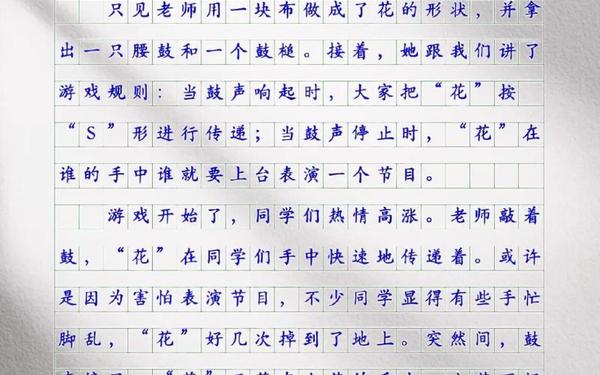 只见老师用一块布做成了花的形状，并拿
出一只腰鼓和一个鼓槌。接着，她跟我们讲了
游戏规则：当鼓声响起时，大家把“花”按
“S”形进行传递；当鼓声停止时，“花”在
谁的手中谁就要上台表演一个节目。
游戏开始了，同学们热情高涨。老师敲着
鼓，“花”在同学们手中快速地传递着。或许
是因为害怕表演节目，不少同学显得有些手忙
脚乱，“花”好几次掉到了地上。突然间，鼓